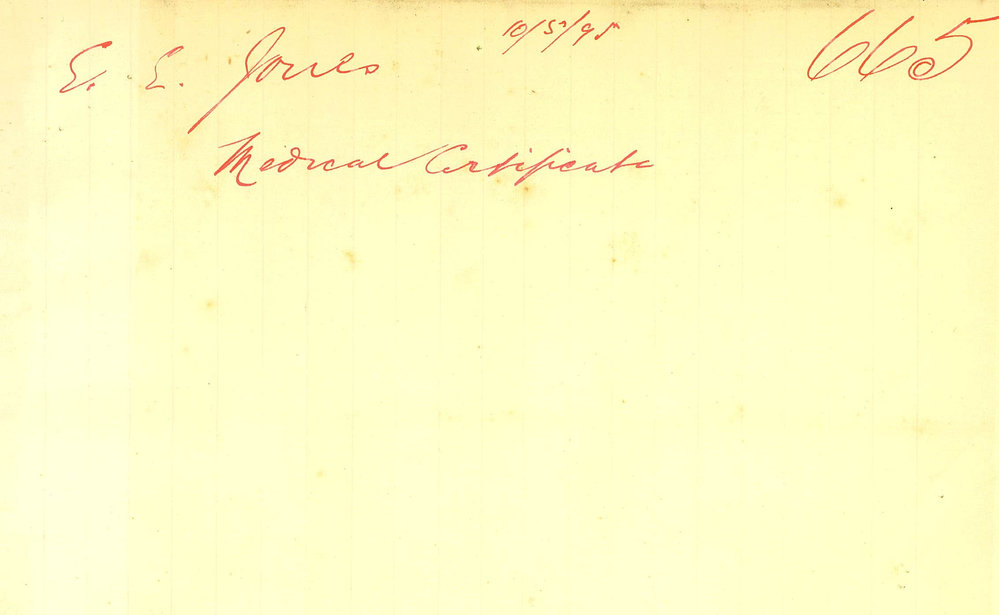 E. E. Jones 10/5/95 665
Medical Certificate